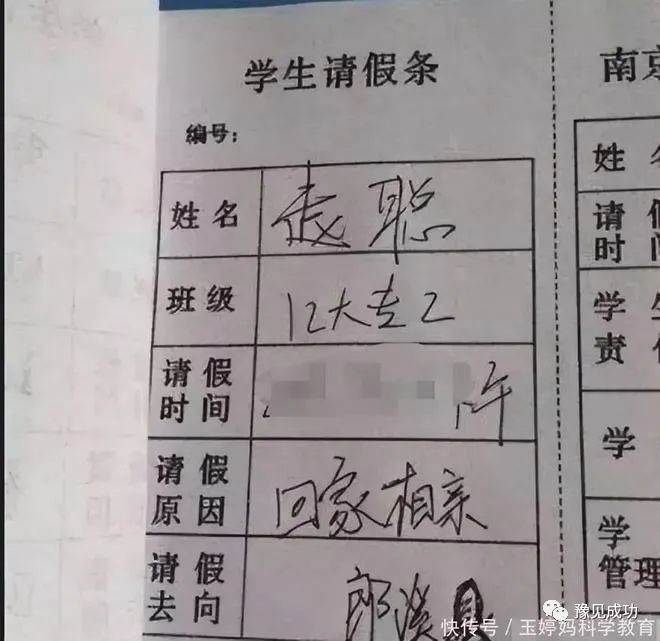 学生请假条
编号:
姓名 赵聪
班级 12大专2
请假时间 下午
请假原因 回家相亲
请假去向 郎溪县
南京
姓
请
时
学生
责
学
学
管理
豫见成功
快传号/玉婷妈科学教育